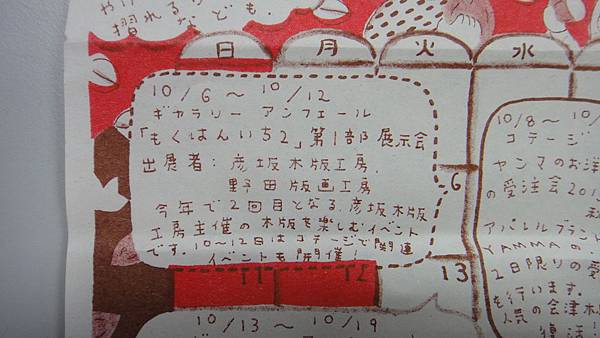 摺れる
なども.
日 月 火 水
10/6 〜 10/12
ギャラリー アンフェール
「もくはんいち2」第1部 展示会
出展者: 彦坂木版工房.
野田版画工房
今年で2回目となる、彦坂木版
工房主催の木版を楽しむイベント
です. 10〜12日はコテージで関連
イベントも開催!
6
11 12 13
10/13 〜 10/19
10/8〜 10/
コテージ
ヤンマのお洋
の受注会201
アパレルブランド
YAMMAの
2日限りの
も行います.
人気の会津木
復活!